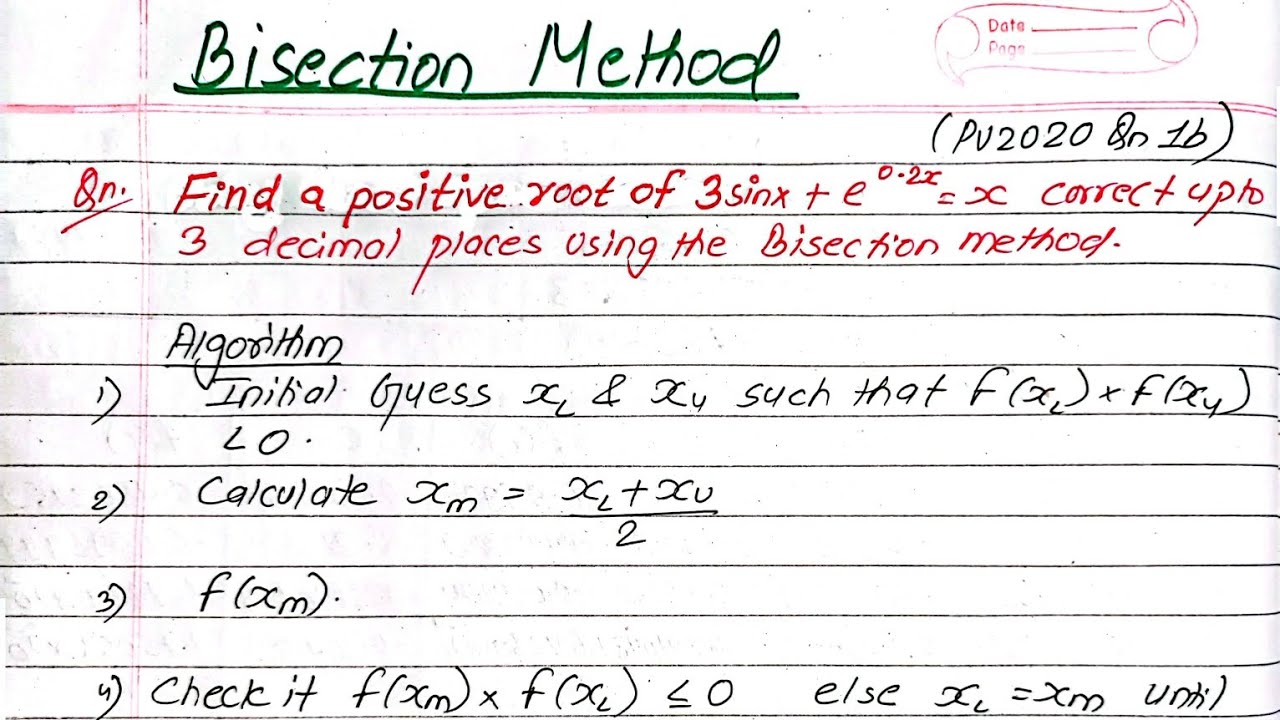 Bisection Method
Date
Page
(PU2020 Qn 1b)
Qn. Find a positive root of 3sinx + e^0.2x = x correct upto
3 decimal places using the Bisection method.
Algorithm
1) Initial Guess x_L & x_u such that f(x_L) × f(x_u)
< 0.
2) Calculate x_m = x_L + x_U / 2
3) f(x_m).
4) Check if f(x_m) × f(x_L) ≤ 0 else x_L = x_m until